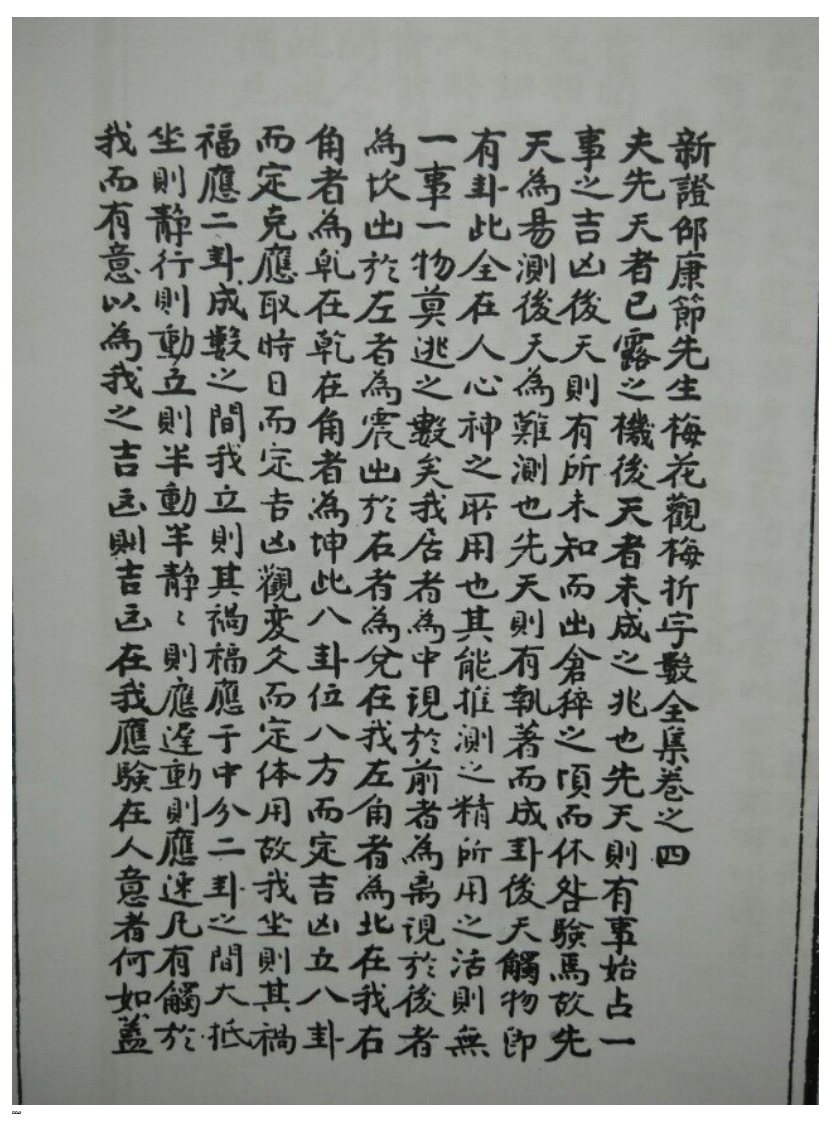 新證邵康節先生梅花觀梅折字數全集卷之四
夫先天者已露之機後天者未成之兆也先天則有事始占一
事之吉凶後天則有所未知而出倉猝之頃而休咎驗焉故先
天為易測後天為難測也先天則有執著而成卦後天觸物即
有卦此全在人心神之所用也其能推測之精所用之活則無
一事一物莫逃之數矣我居者為中現於前者為离現於後者
為坎出於左者為震出於右者為兌在我左角者為北在我右
角者為乹在乾在角者為坤此八卦位八方而定吉凶立八卦
而定克應取時日而定吉凶觀変爻而定体用故我坐則其禍
福應二卦成數之間我立則其禍福應于中分二卦之間大抵
坐則靜行則動立則半動半靜〻則應遲動則應速凡有觸於
我而有意以為我之吉凶則吉凶在我應驗在人意者何如蓋